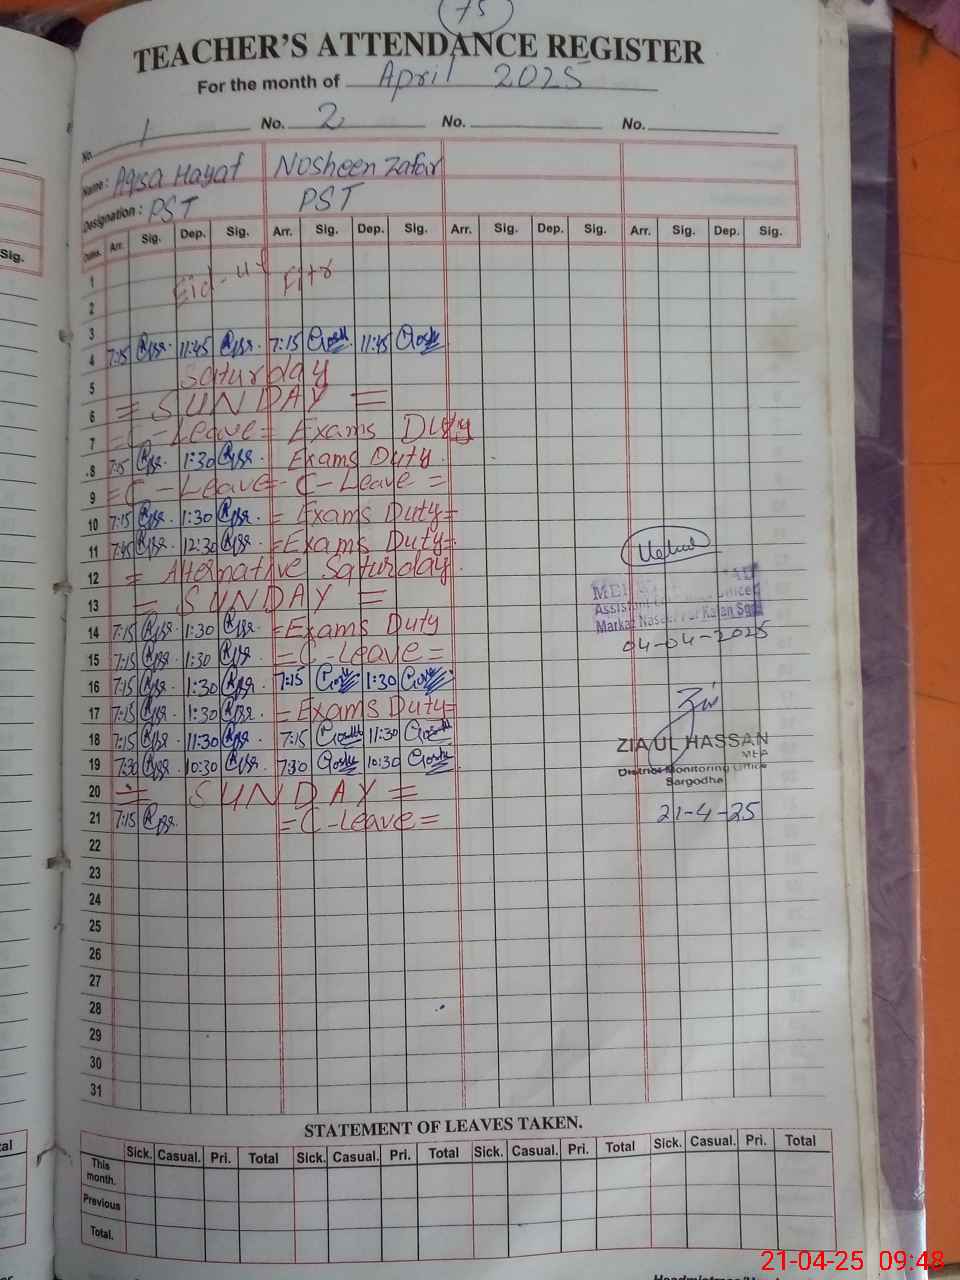 75
TEACHER'S ATTENDANCE REGISTER
For the month of April 2025
No. 1 No. 2 No. No.
Name : Aqsa Hayat Nosheen Zafar
Designation : PST PST
Dates. Arr. Sig. Dep. Sig. Arr. Sig. Dep. Sig. Arr. Sig. Dep. Sig. Arr. Sig. Dep. Sig.
1 Eid-ul Fitr
2
3
4 7:15 11:45 7:15 11:45
5 Saturday
6 = SUNDAY =
7 = C-Leave = Exams Duty
8 7:15 1:30 Exams Duty
9 = C-Leave = C-Leave =
10 7:15 1:30 = Exams Duty =
11 7:45 12:30 = Exams Duty =
12 = Alternative Saturday
13 = SUNDAY =
14 7:15 1:30 = Exams Duty
15 7:15 1:30 = C-Leave =
16 7:15 1:30 7:15 1:30
17 7:15 1:30 = Exams Duty =
18 7:15 11:30 7:15 11:30
19 7:30 10:30 7:30 10:30
20 = SUNDAY =
21 7:15 = C-Leave =
22
23
24
25
26
27
28
29
30
31
Assistant
Markaz
04-04-2025
ZIA UL HASSAN
MEA
District Monitoring Office
Sargodha
21-4-25
STATEMENT OF LEAVES TAKEN.
Sick. Casual. Pri. Total Sick. Casual. Pri. Total Sick. Casual. Pri. Total Sick. Casual. Pri. Total
This month.
Previous
Total.
Sig.
21-04-25 09:48